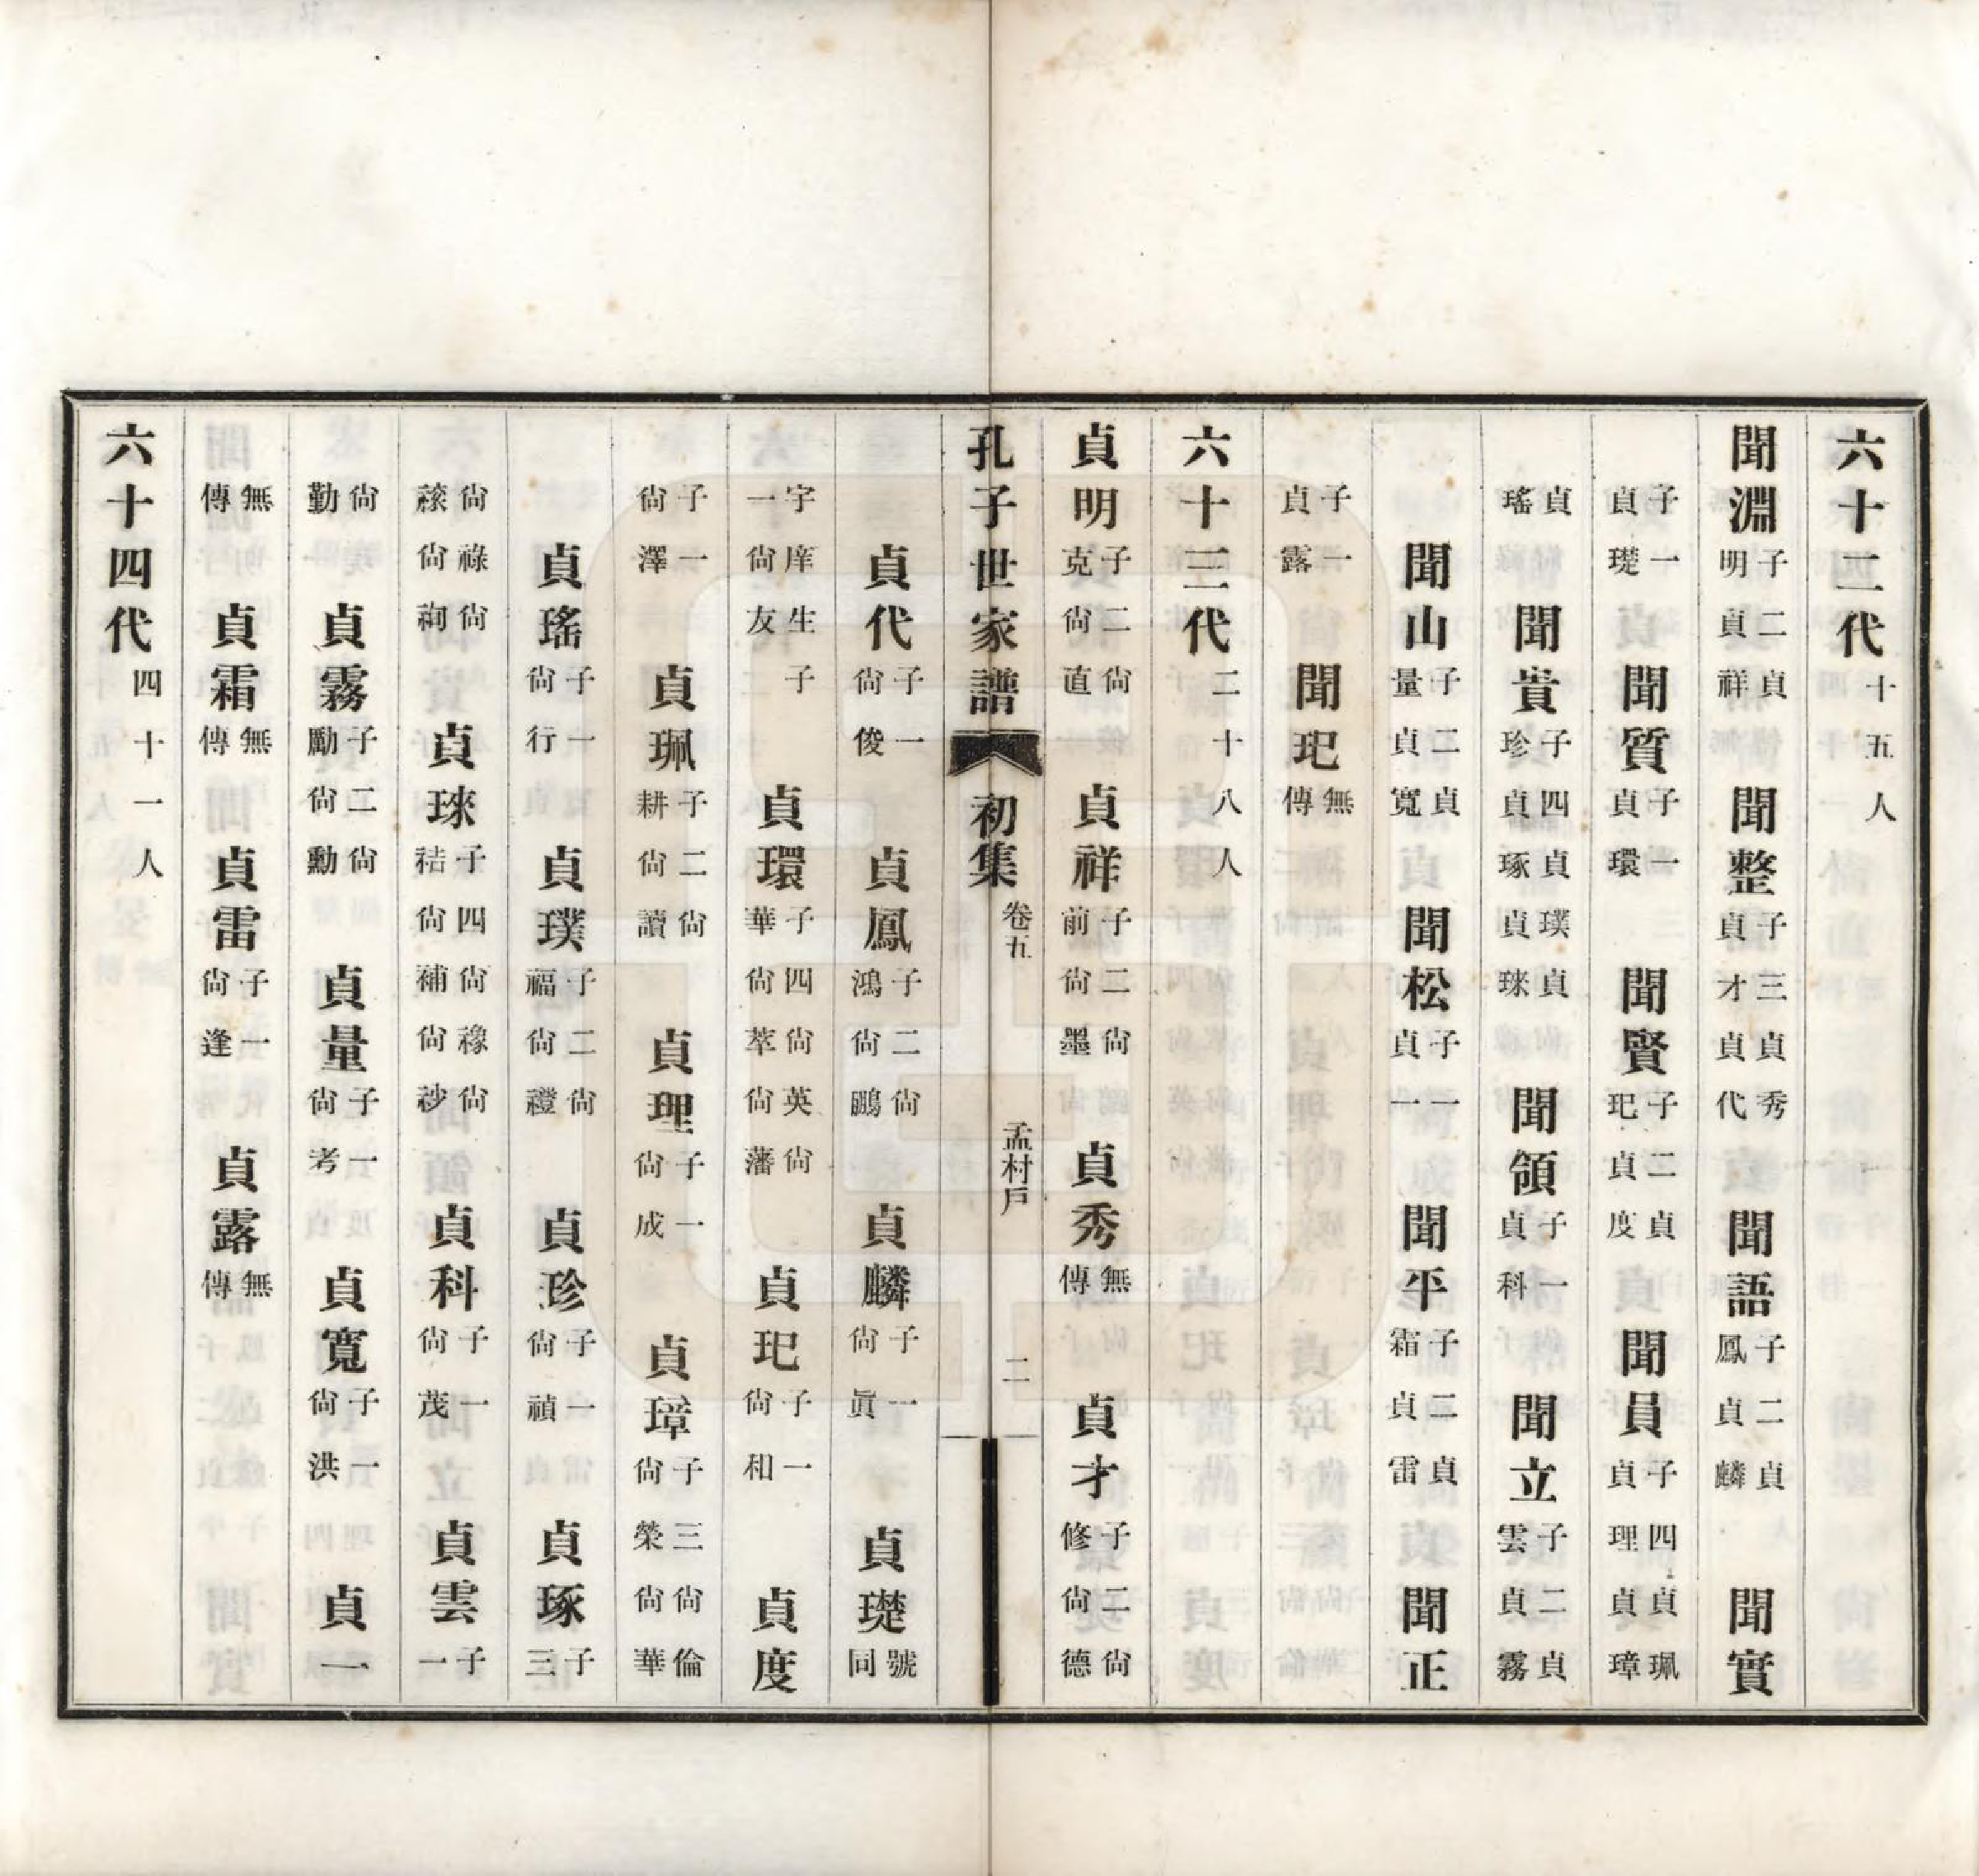 六十二代十五人
聞淵子二貞明貞祥 聞整子三貞秀貞才貞代 聞語子二貞鳳貞麟 聞實
子一貞璴 聞質子一貞環 聞賢子二貞玘貞度 聞員子四貞珮貞理貞璋
貞瑤 聞貴子四貞珍貞璞貞琢貞琜 聞領子一貞科 聞立子二貞雲貞霧
聞山子二貞量貞寬 聞松子一貞一 聞平子二貞霜貞雷 聞正
子一貞露 聞玘無傳
六十三代二十八人
貞明子二尙克尙直 貞祥子二尙前尙墨 貞秀無傳 貞才子二尙修尙德
孔子世家譜 初集 卷五 孟村戶 二
貞代子一尙俊 貞鳳子二尙鴻尙鵬 貞麟子一尙眞 貞璴號同
一字庠生子一尙友 貞環子四尙華尙英尙萃尙藩 貞玘子一尙和 貞度
子一尙澤 貞珮子二尙耕尙讀 貞理子一尙成 貞璋子三尙倫尙榮尙華
貞瑤子一尙行 貞璞子二尙福尙禮 貞珍子一尙禎 貞琢子三
尙祿尙禚尙祹 貞琜子四尙祮尙禒尙補尙袗 貞科子一尙茂 貞雲子一
尙勤 貞霧子二尙勵尙勳 貞量子一尙考 貞寬子一尙洪 貞一
無傳 貞霜無傳 貞雷子一尙逢 貞露無傳
六十四代四十一人